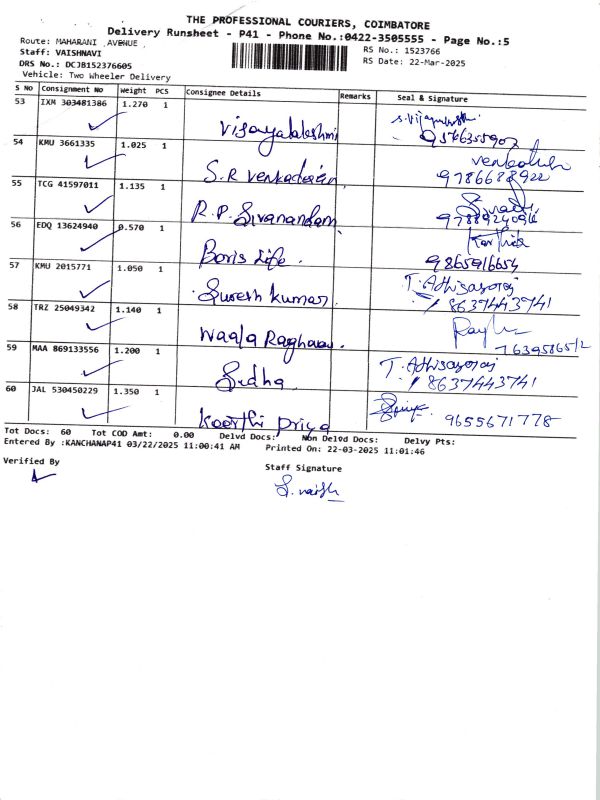 THE PROFESSIONAL COURIERS, COIMBATORE
Delivery Runsheet - P41 - Phone No.:0422-3505555 - Page No.:5
Route: MAHARANI ,AVENUE , RS No.: 1523766
Staff: VAISHNAVI RS Date: 22-Mar-2025
DRS No.: DCJB152376605
Vehicle: Two Wheeler Delivery
S NO Consignment No Weight PCS Consignee Details Remarks Seal & Signature
53 IXM 303481386 1.270 1 Vijayalakshmi
54 KMU 3661335 1.025 1 S.R Venkadesan 9786688922
55 TCG 41597011 1.135 1 R.P. Sivanandam
56 EDQ 13624940 0.570 1 Boris Life . Karthick
9865916654
57 KMU 2015771 1.050 1 Suresh Kumar . T. Adhisayaraj
8637443741
58 TRZ 25049342 1.140 1 Waala Raghavan. 7639586512
59 MAA 869133556 1.200 1 Sudha T. Adhisayaraj
8637443741
60 JAL 530450229 1.350 1 Keerthi Priya 9655671778
Tot Docs: 60 Tot COD Amt: 0.00 Delvd Docs: Non Delvd Docs: Delvy Pts:
Entered By :KANCHANAP41 03/22/2025 11:00:41 AM Printed On: 22-03-2025 11:01:46
Verified By
Staff Signature